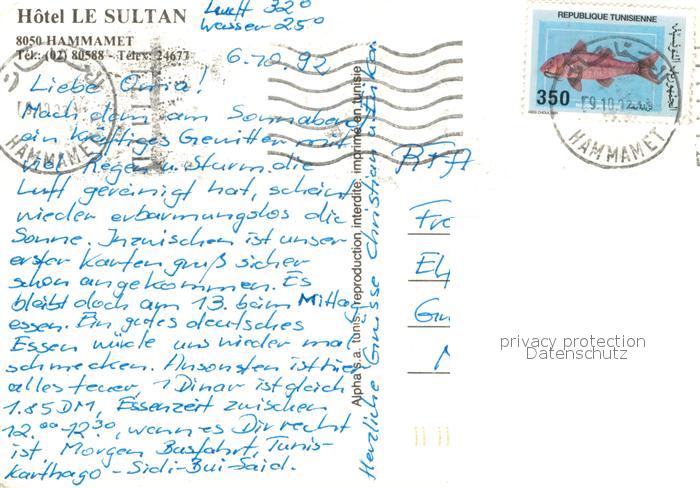 Hôtel LE SULTAN
8050 HAMMAMET
Tél.: (02) 80588 - Télex: 24677
Luft 32°
Wasser 25°
6.10.92
Liebe Oma!
Nach dem am Sonnabend
ein kräftiges Gewitter mit
viel Regen u. Sturm die
Luft gereinigt hat, scheint
wieder erbarmungslos die
Sonne. Inzwischen ist unser
erster Kartengruß sicher
schon angekommen. Es
bleibt doch am 13. beim Mittag
essen. Ein gutes deutsches
Essen würde uns wieder mal
schmecken. Ansonsten ist hier
alles teuer, 1 Dinar ist gleich
1.85 DM, Essenzeit zwischen
12.00-12.30, wenn es Dir recht
ist. Morgen Busfahrt, Tunis-
Karthago - Sidi-Bui-Said.
Herzliche Grüsse Christian u.
Alpha s.a. tunis, reproduction interdite, imprimé en tunisie
REPUBLIQUE TUNISIENNE
350
9.10.
HAMMAMET
HAMMAMET
RFA
Fre
El
Gu
privacy protection
Datenschutz